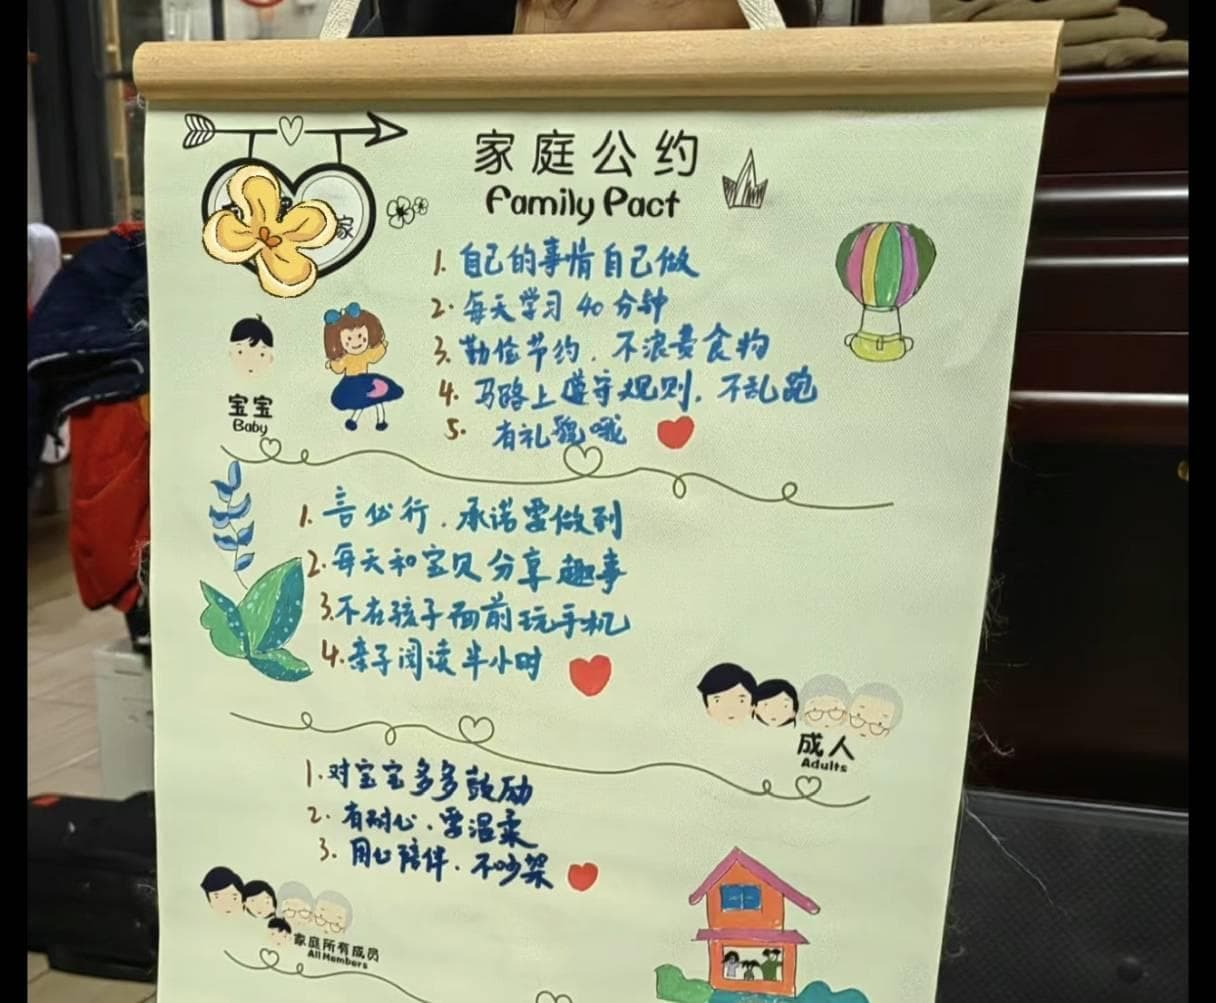 家庭公约
Family Pact
家
1. 自己的事情自己做
2. 每天学习40分钟
3. 勤俭节约、不浪费食物
4. 马路上遵守规则、不乱跑
5. 有礼貌哦
宝宝
Baby
1. 言必行、承诺要做到
2. 每天和宝贝分享趣事
3. 不在孩子面前玩手机
4. 亲子阅读半小时
成人
Adults
1. 对宝宝多多鼓励
2. 有耐心、要温柔
3. 用心陪伴、不吵架
家庭所有成员
All Members